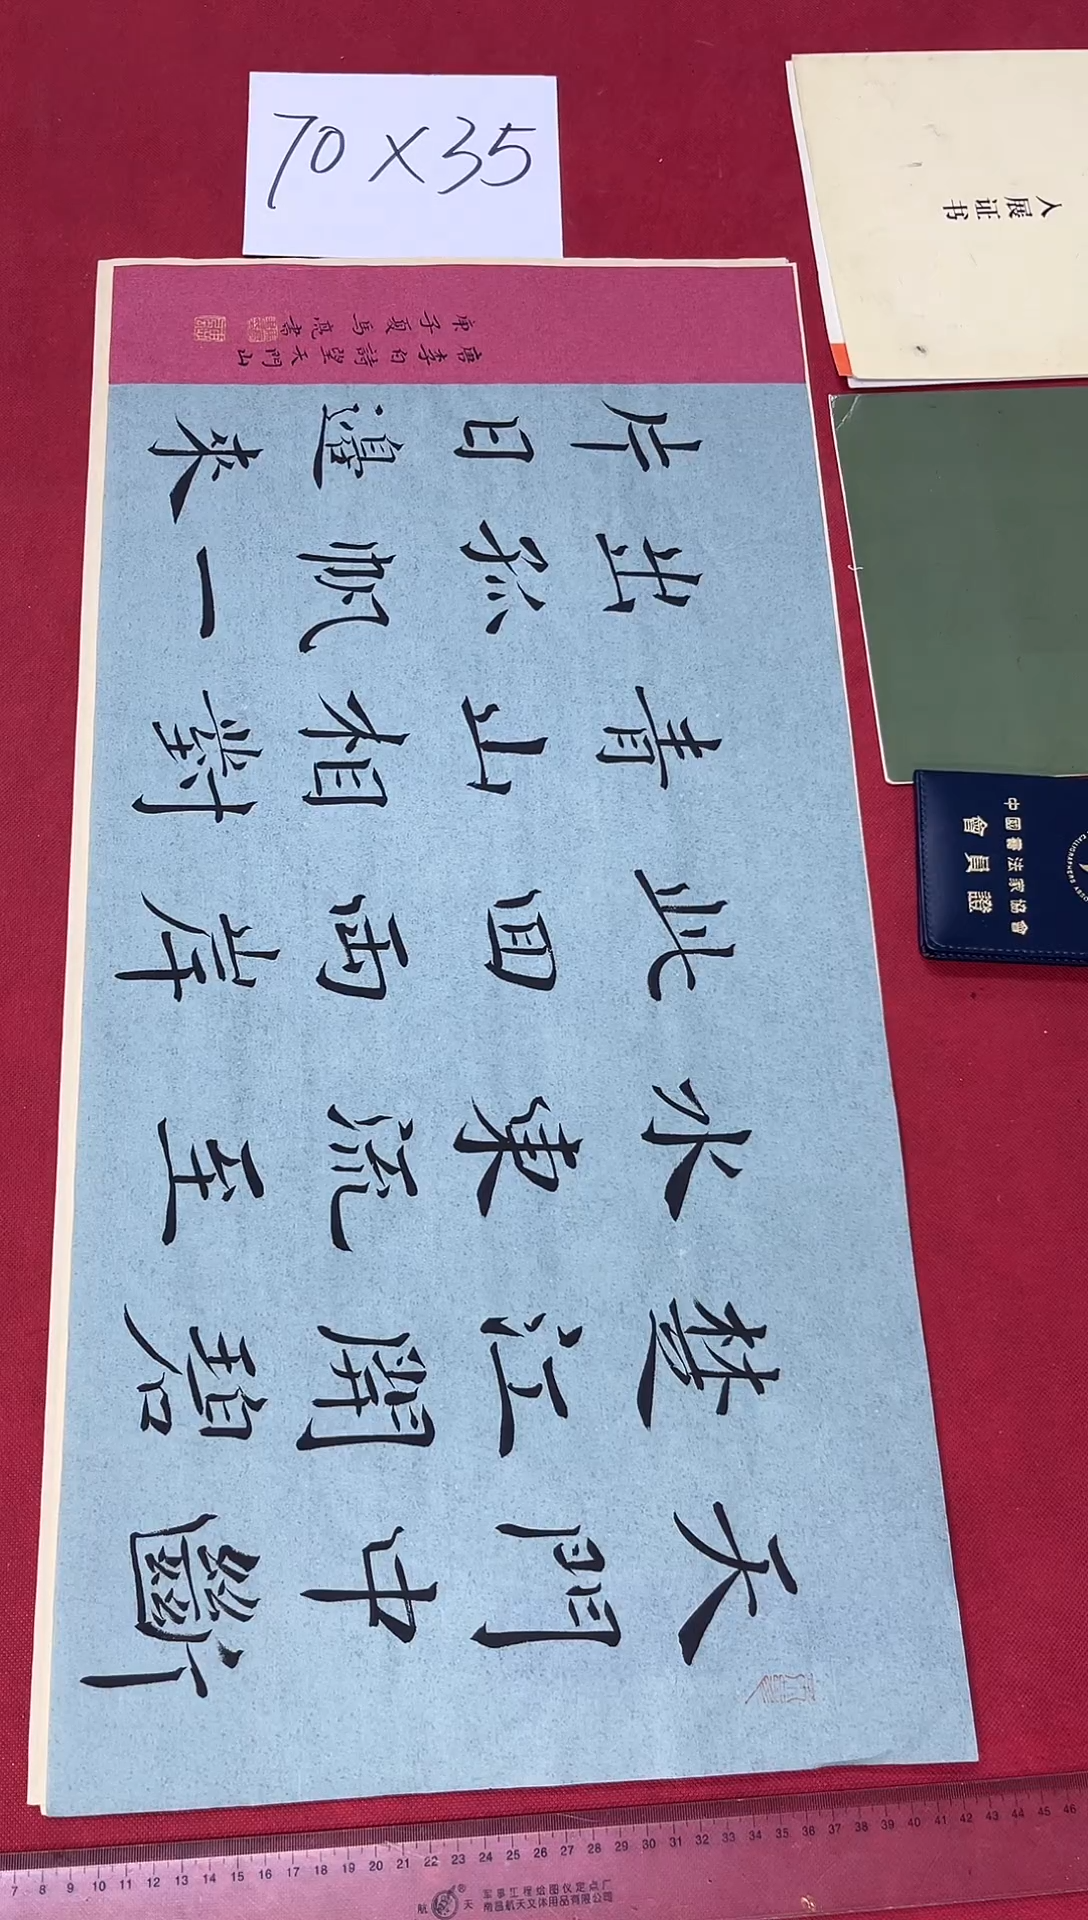 70×35
入展证书
中國書法家協會
會員證
天門中斷
楚江開碧
水東流至
此回兩岸
青山相對
出孤帆一
片日邊來
唐李白詩望天門山
庚子夏馬亮書
7 8 9 10 11 12 13 14 15 16 17 18 19 20 21 22 23 24 25 26 27 28 29 30 31 32 33 34 35 36 37 38 39 40 41 42 43 44 45 46
航天
军事工程绘图仪定点厂
南昌航天文体用品有限公司